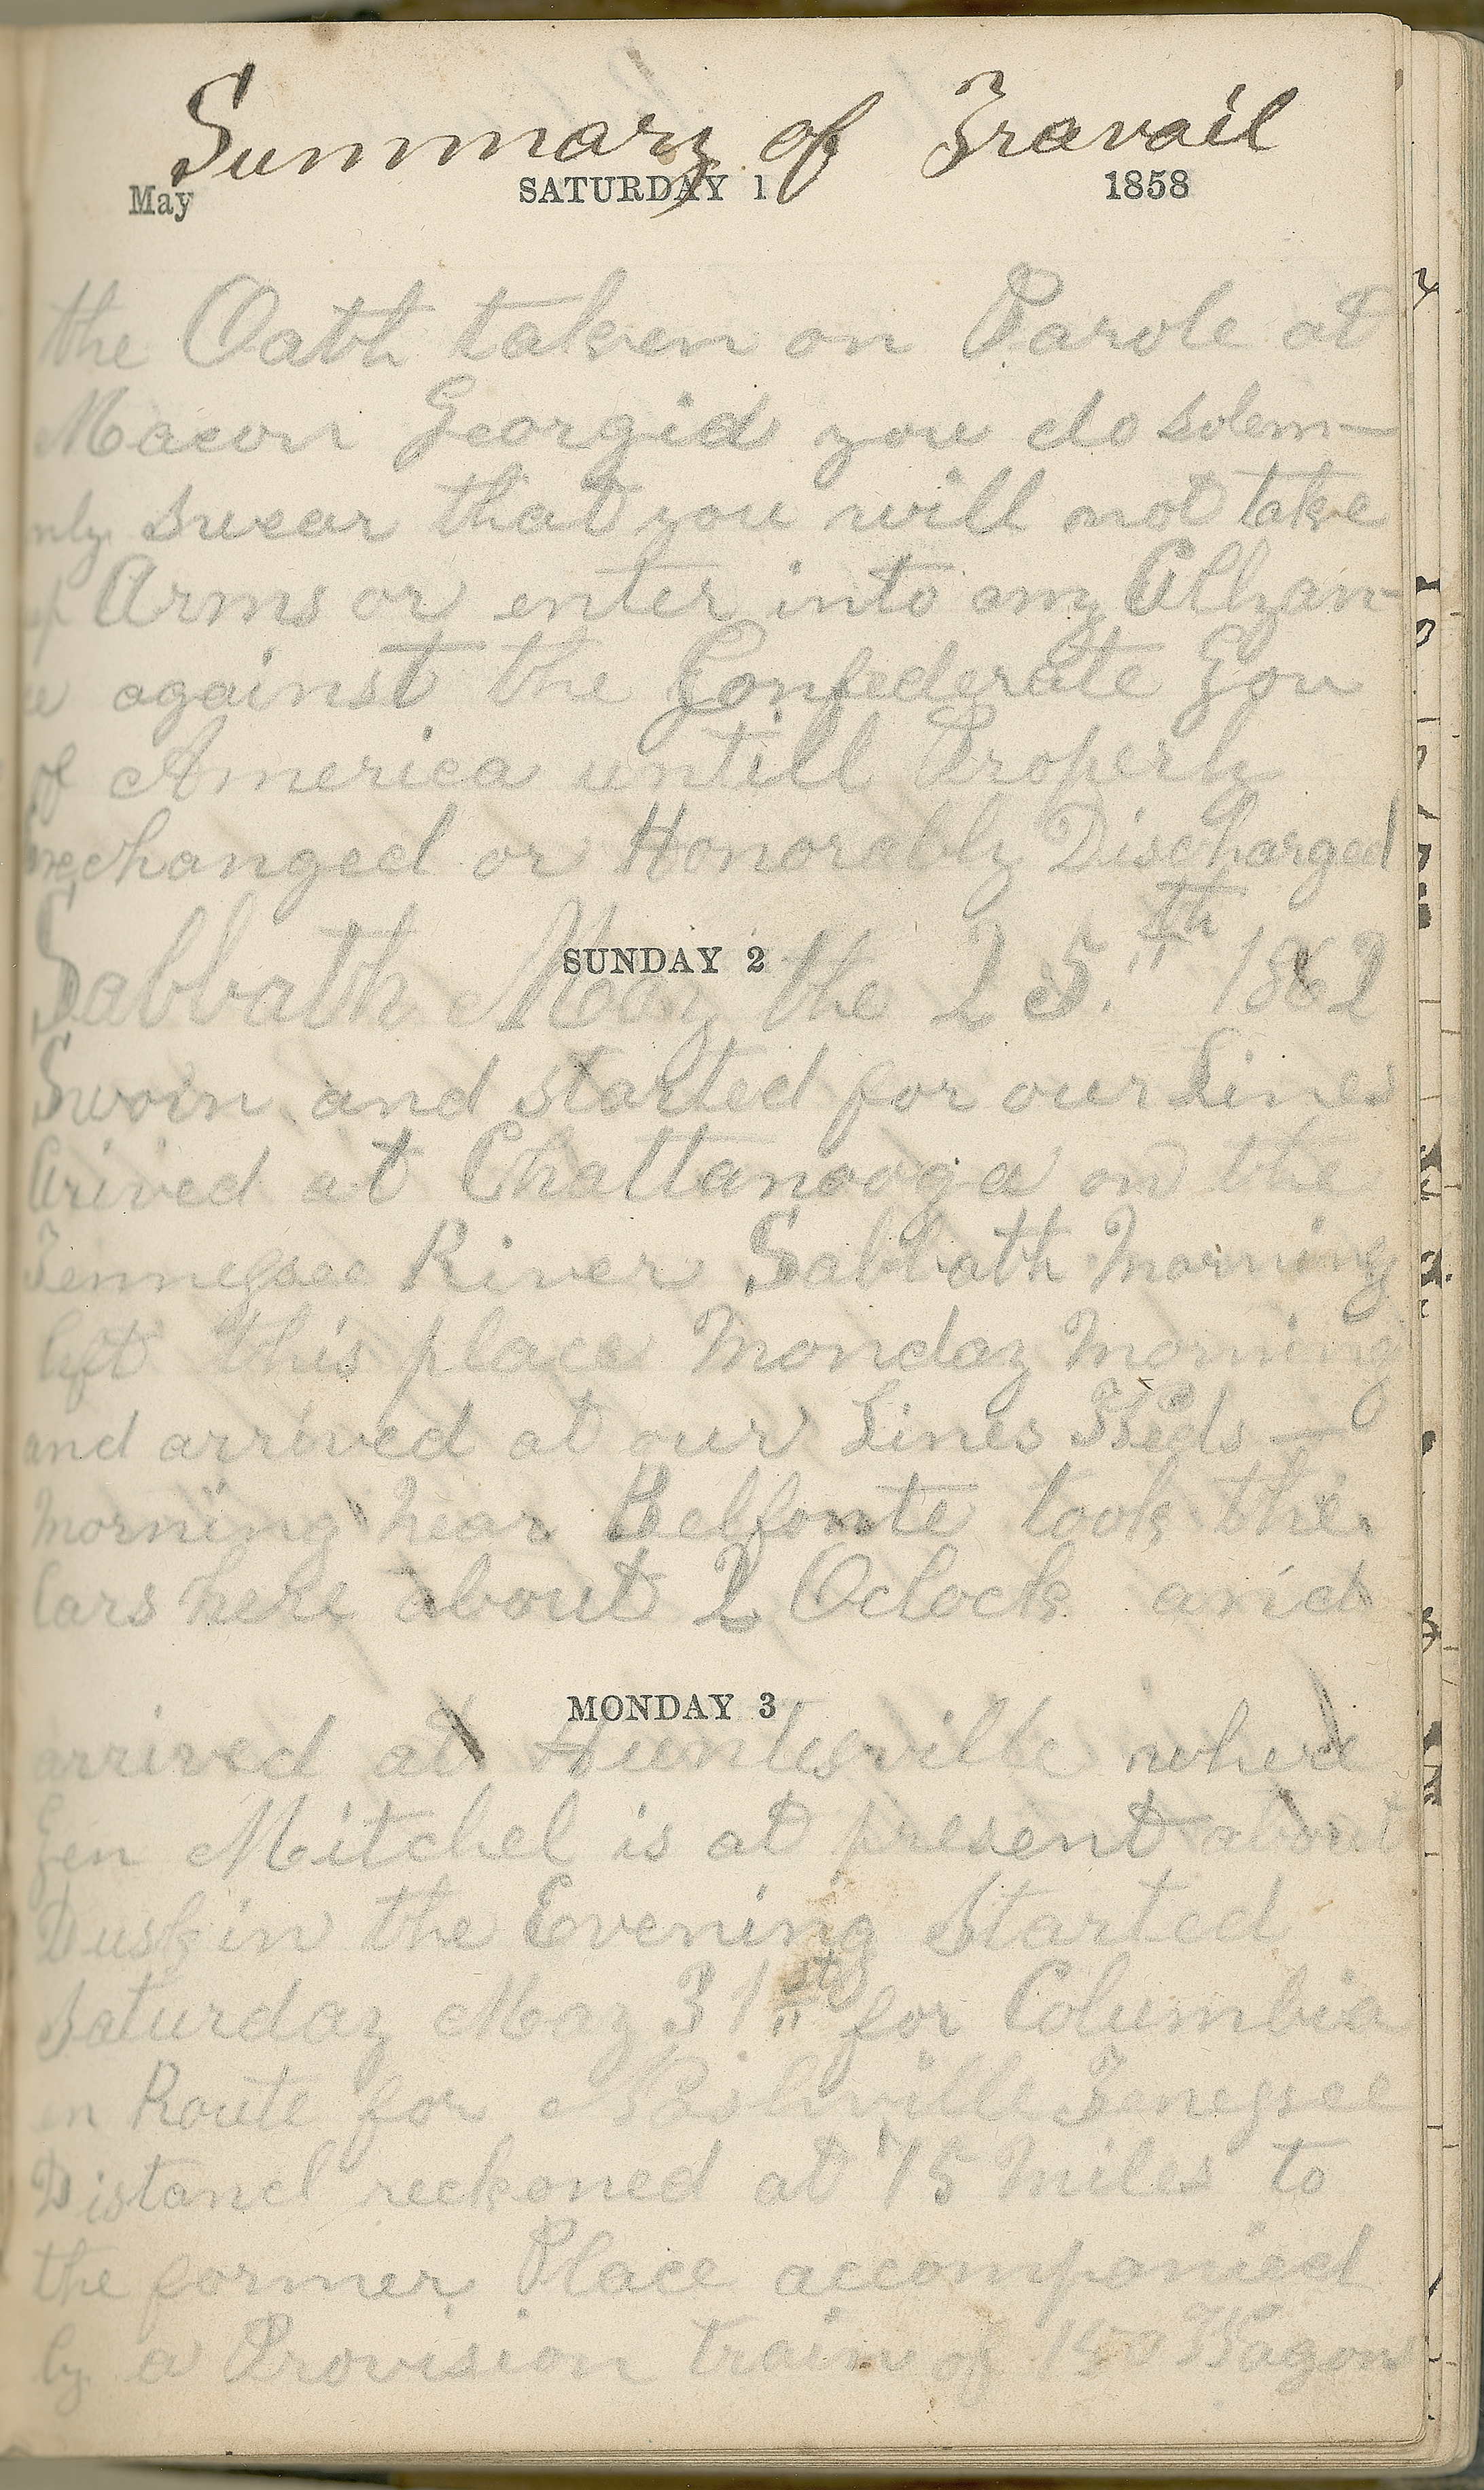 Summary of Travail
May SATURDAY 1 1858
the Oath taken on Parole at
Macon Georgia you do solem-
nly swear that you will not take
up Arms or enter into any Allyan-
ce against the Confederate Gov
of America untill Properly
exchanged or Honorably Discharged
SUNDAY 2
Sabbath May the 25.th 1862
Sworn and started for our Lines
Arived at Chattanooga on the
Tennessee River Sabbath Morning
left this place Monday Morning
and arrived at our Lines Weds -
morning near Belfonte took the
Cars here about 2 Oclock and
MONDAY 3
arrived at Huntsville where
Gen Mitchel is at present about
Dusk in the Evening Started
Saturday May 31st for Columbia
en Route for Nashville Tenessee
Distancl reckoned at 75 Miles to
the former Place accompanied
by a Provision train of 150 Wagons